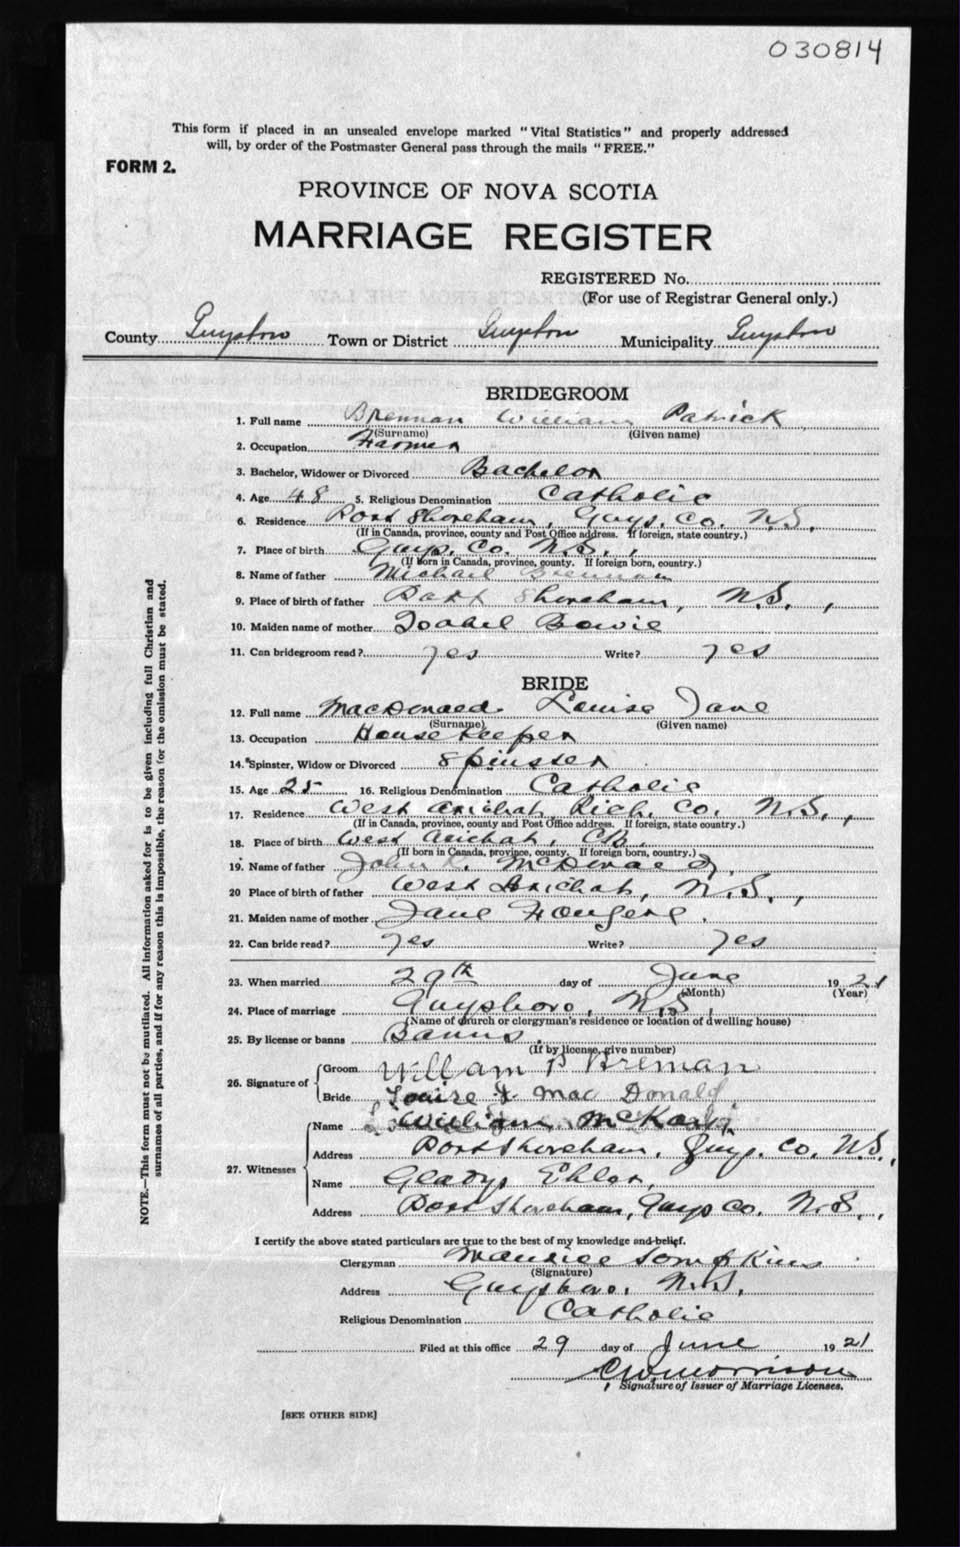 030814
This form if placed in an unsealed envelope marked "Vital Statistics" and properly addressed
will, by order of the Postmaster General pass through the mails "FREE."
FORM 2.
PROVINCE OF NOVA SCOTIA
MARRIAGE REGISTER
REGISTERED No.
(For use of Registrar General only.)
County Guysboro Town or District Guysboro Municipality Guysboro
BRIDEGROOM
1. Full name Brennan William Patrick
(Surname) (Given name)
2. Occupation Farmer
3. Bachelor, Widower or Divorced Bachelor
4. Age 48 5. Religious Denomination Catholic
6. Residence Port Shoreham, Guys. Co. N.S.
(If in Canada, province, county and Post Office address. If foreign, state country.)
7. Place of birth Guys. Co. N.S.,
(If born in Canada, province, county. If foreign born, country.)
8. Name of father Michael Brennan
9. Place of birth of father Port Shoreham, N.S.,
10. Maiden name of mother Isabel Bowie
11. Can bridegroom read? yes Write? yes
BRIDE
12. Full name MacDonald Louise Jane
(Surname) (Given name)
13. Occupation House Keeper
14. Spinster, Widow or Divorced Spinster
15. Age 25 16. Religious Denomination Catholic
17. Residence West Arichat, Rich. Co. N.S.,
(If in Canada, province, county and Post Office address. If foreign, state country.)
18. Place of birth West Arichat, C.B.
(If born in Canada, province, county. If foreign born, country.)
19. Name of father John McDonald,
20 Place of birth of father West Arichat, N.S.,
21. Maiden name of mother Jane Fougere.
22. Can bride read? yes Write? yes
23. When married 29th day of June 1921
(Month) (Year)
24. Place of marriage Guysboro, N.S.,
(Name of church or clergyman's residence or location of dwelling house)
25. By license or banns Banns.
(If by license, give number)
26. Signature of Groom William P Brennan
Bride Louise J. MacDonald
27. Witnesses
Name William
Address Port Shoreham, Guys. Co. N.S.,
Name Gladys Ehler,
Address Port Shoreham, Guys Co. N.S.,
I certify the above stated particulars are true to the best of my knowledge and belief.
Clergyman Maurice Tompkins
(Signature)
Address Guysboro, N.S.,
Religious Denomination Catholic
Filed at this office 29 day of June 1921
C W Morrison
Signature of Issuer of Marriage Licenses.
[SEE OTHER SIDE]
NOTE.—This form must not be mutilated. All information asked for is to be given including full Christian and
surnames of all parties, and if for any reason this is impossible, the reason for the omission must be stated.